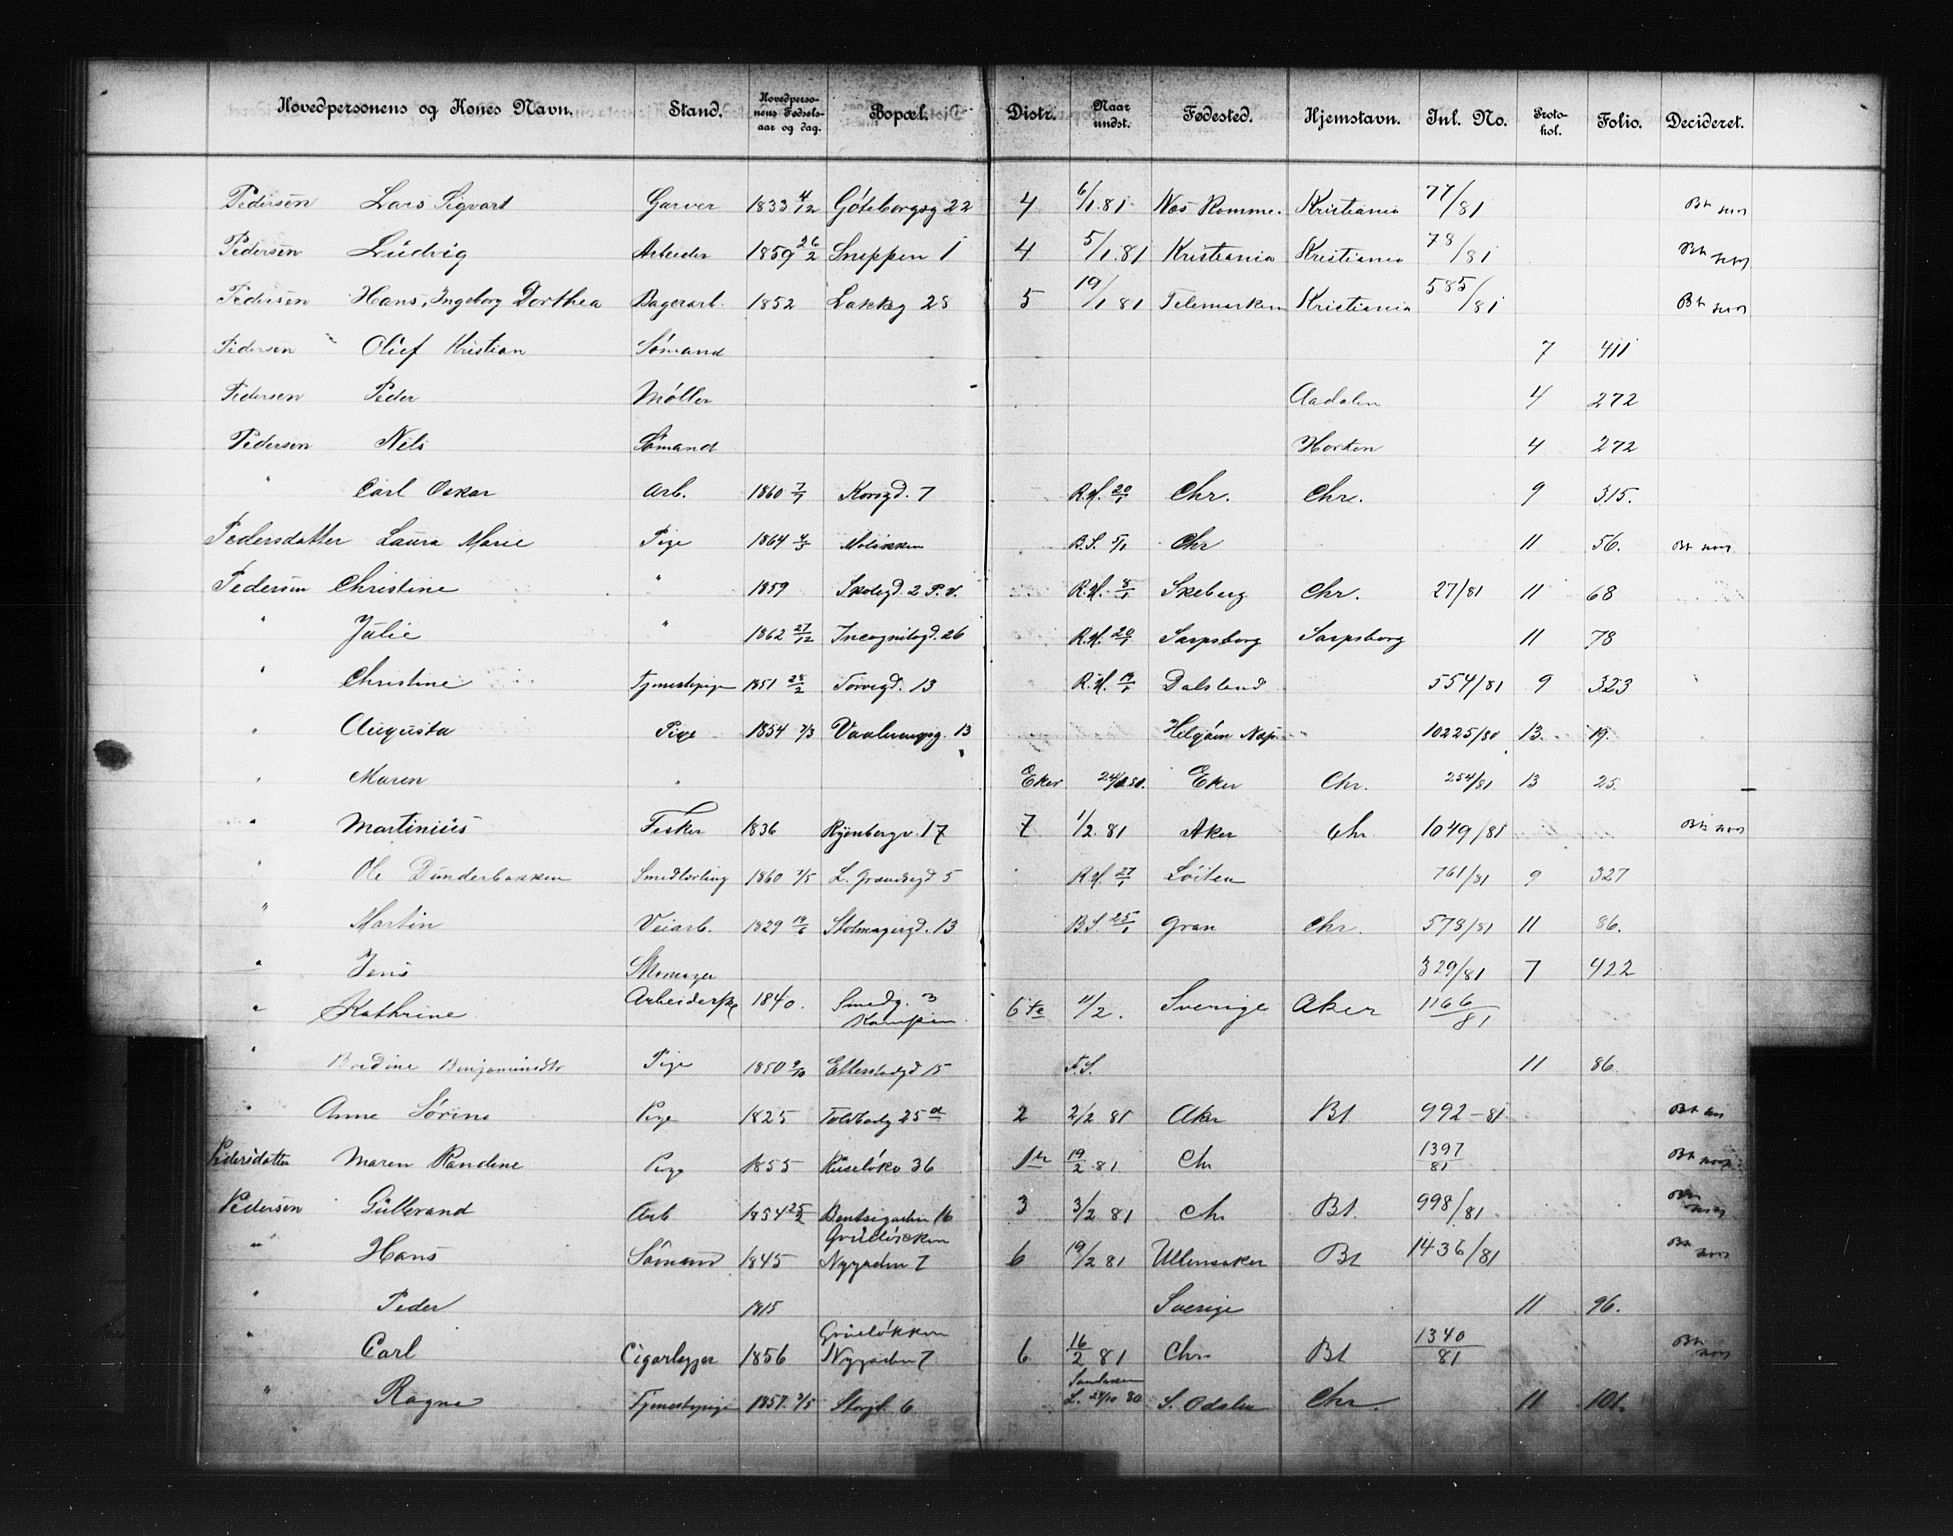 Hovedpersonens og Kones Navn. Stand. Hovedpersonens Fødselsaar og dag. Bopæl. Distr. Naar undst. Fødested. Hjemstavn. Inl. No. Protokol. Folio. Decideret.
Pedersen Lars Sigvart Garver 1833 4/12 Göteborgsg 22 4 6/1 81 Næs Romme. Kristiania 77/81
Pedersen Ludvig Arbeider 1859 26/2 Sneppen 1 4 5/1 81 Kristiania Kristiania 78/81
Pedersen Hans, Ingeborg Dorthea Bagerarb. 1852 Lakkeg 28 5 19/1 81 Telemarken Kristiania 585/81
Pedersen Oluf Kristian Sømand 7 411
Pedersen Peder Møller Aadalen 4 272
Pedersen Nils Sømand Horten 4 272
" Carl Oskar Arb. 1860 7/7 Korsgd. 7 R.H. 20/1 Chr. Chr. 9 315.
Pedersdatter Laura Marie Pige 1864 4/3 B.S. 5/1 Chr 11 56.
Pedersen Christine " 1859 Skolegd. 2 P.V. R.H. 8/1 Skeberg Chr. 27/81 11 68
" Julie " 1862 27/12 Incognitogd. 26 R.H. 20/1 Sarpsborg Sarpsborg 11 78
" Christine Tjenestepige 1851 28/2 Torvegd. 13 R.H. 19/1 Dalsland 554/81 9 323
" Augusta Pige 1854 7/3 Vaalerengsg. 13 Helgøen Næs 10225/80 13. 19.
" Maren " Eker Eker Chr. 254/81 13 25.
" Martinius Fisker 1836 Ryenbergv. 17 7 1/2 81 Aker Chr 1049/81
" Ole Dunderbakken Smedlærling 1860 7/5 L. Grændsegd 5 R.H. 27/1 Løiten 761/81 9 327
" Martin Veiarb. 1829 19/6 Stolmagergd. 13 B.S. 25/1 Gran Chr. 578/81 11 86.
" Jens Skomager 329/81 7 422
" Kathrine Arbeiderske 1840. Smedg. 3 Kampen 6te 11/2. Sverige Aker 1166/81
" Bredine Benjaminsdtr Pige 1850 9/10 Etterstadgd 15 F.S. 11 86.
" Anne Sørine Pige 1825 Toldbodg 25 d 2 2/2 81 Aker Bt 992-81
Pedersdatter Maren Randine Pige 1855 Ruseløkv 36 1te 19/2 81 Chr 1397/81
Pedersen Gulbrand Arb 1854 25/2 Bentsegaden 16 3 3/2 81 Chr Bt. 998/81
" Hans Sømand 1845 Grueløkken Nygaden 7 6 19/2 81 Ullensaker Bt 1436/81
" Peder 1815 Sverige 11 96.
" Carl Cigarlægger 1856 Grueløkken Nygaden 7 6 16/2 81 Chr Bt 1340/81
" Ragna Tjenestepige 1857. 3/5 Storgt. 6 S. Odalen Chr. 11 101.